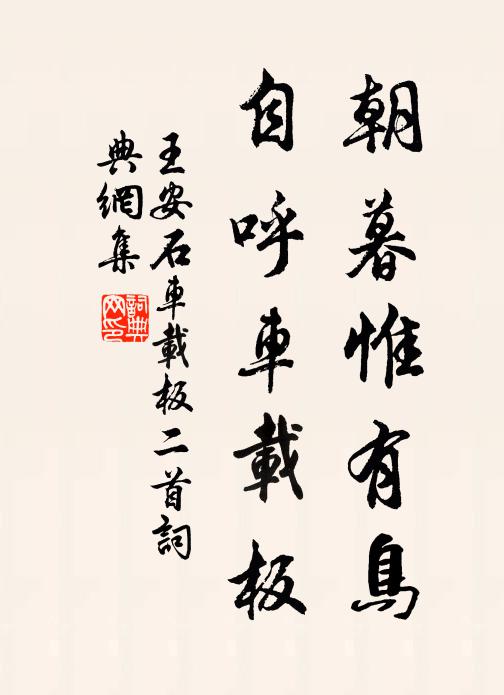 朝暮惟有鳥
自呼車載板
王安石車載板二首詞
典網集
詞典网印